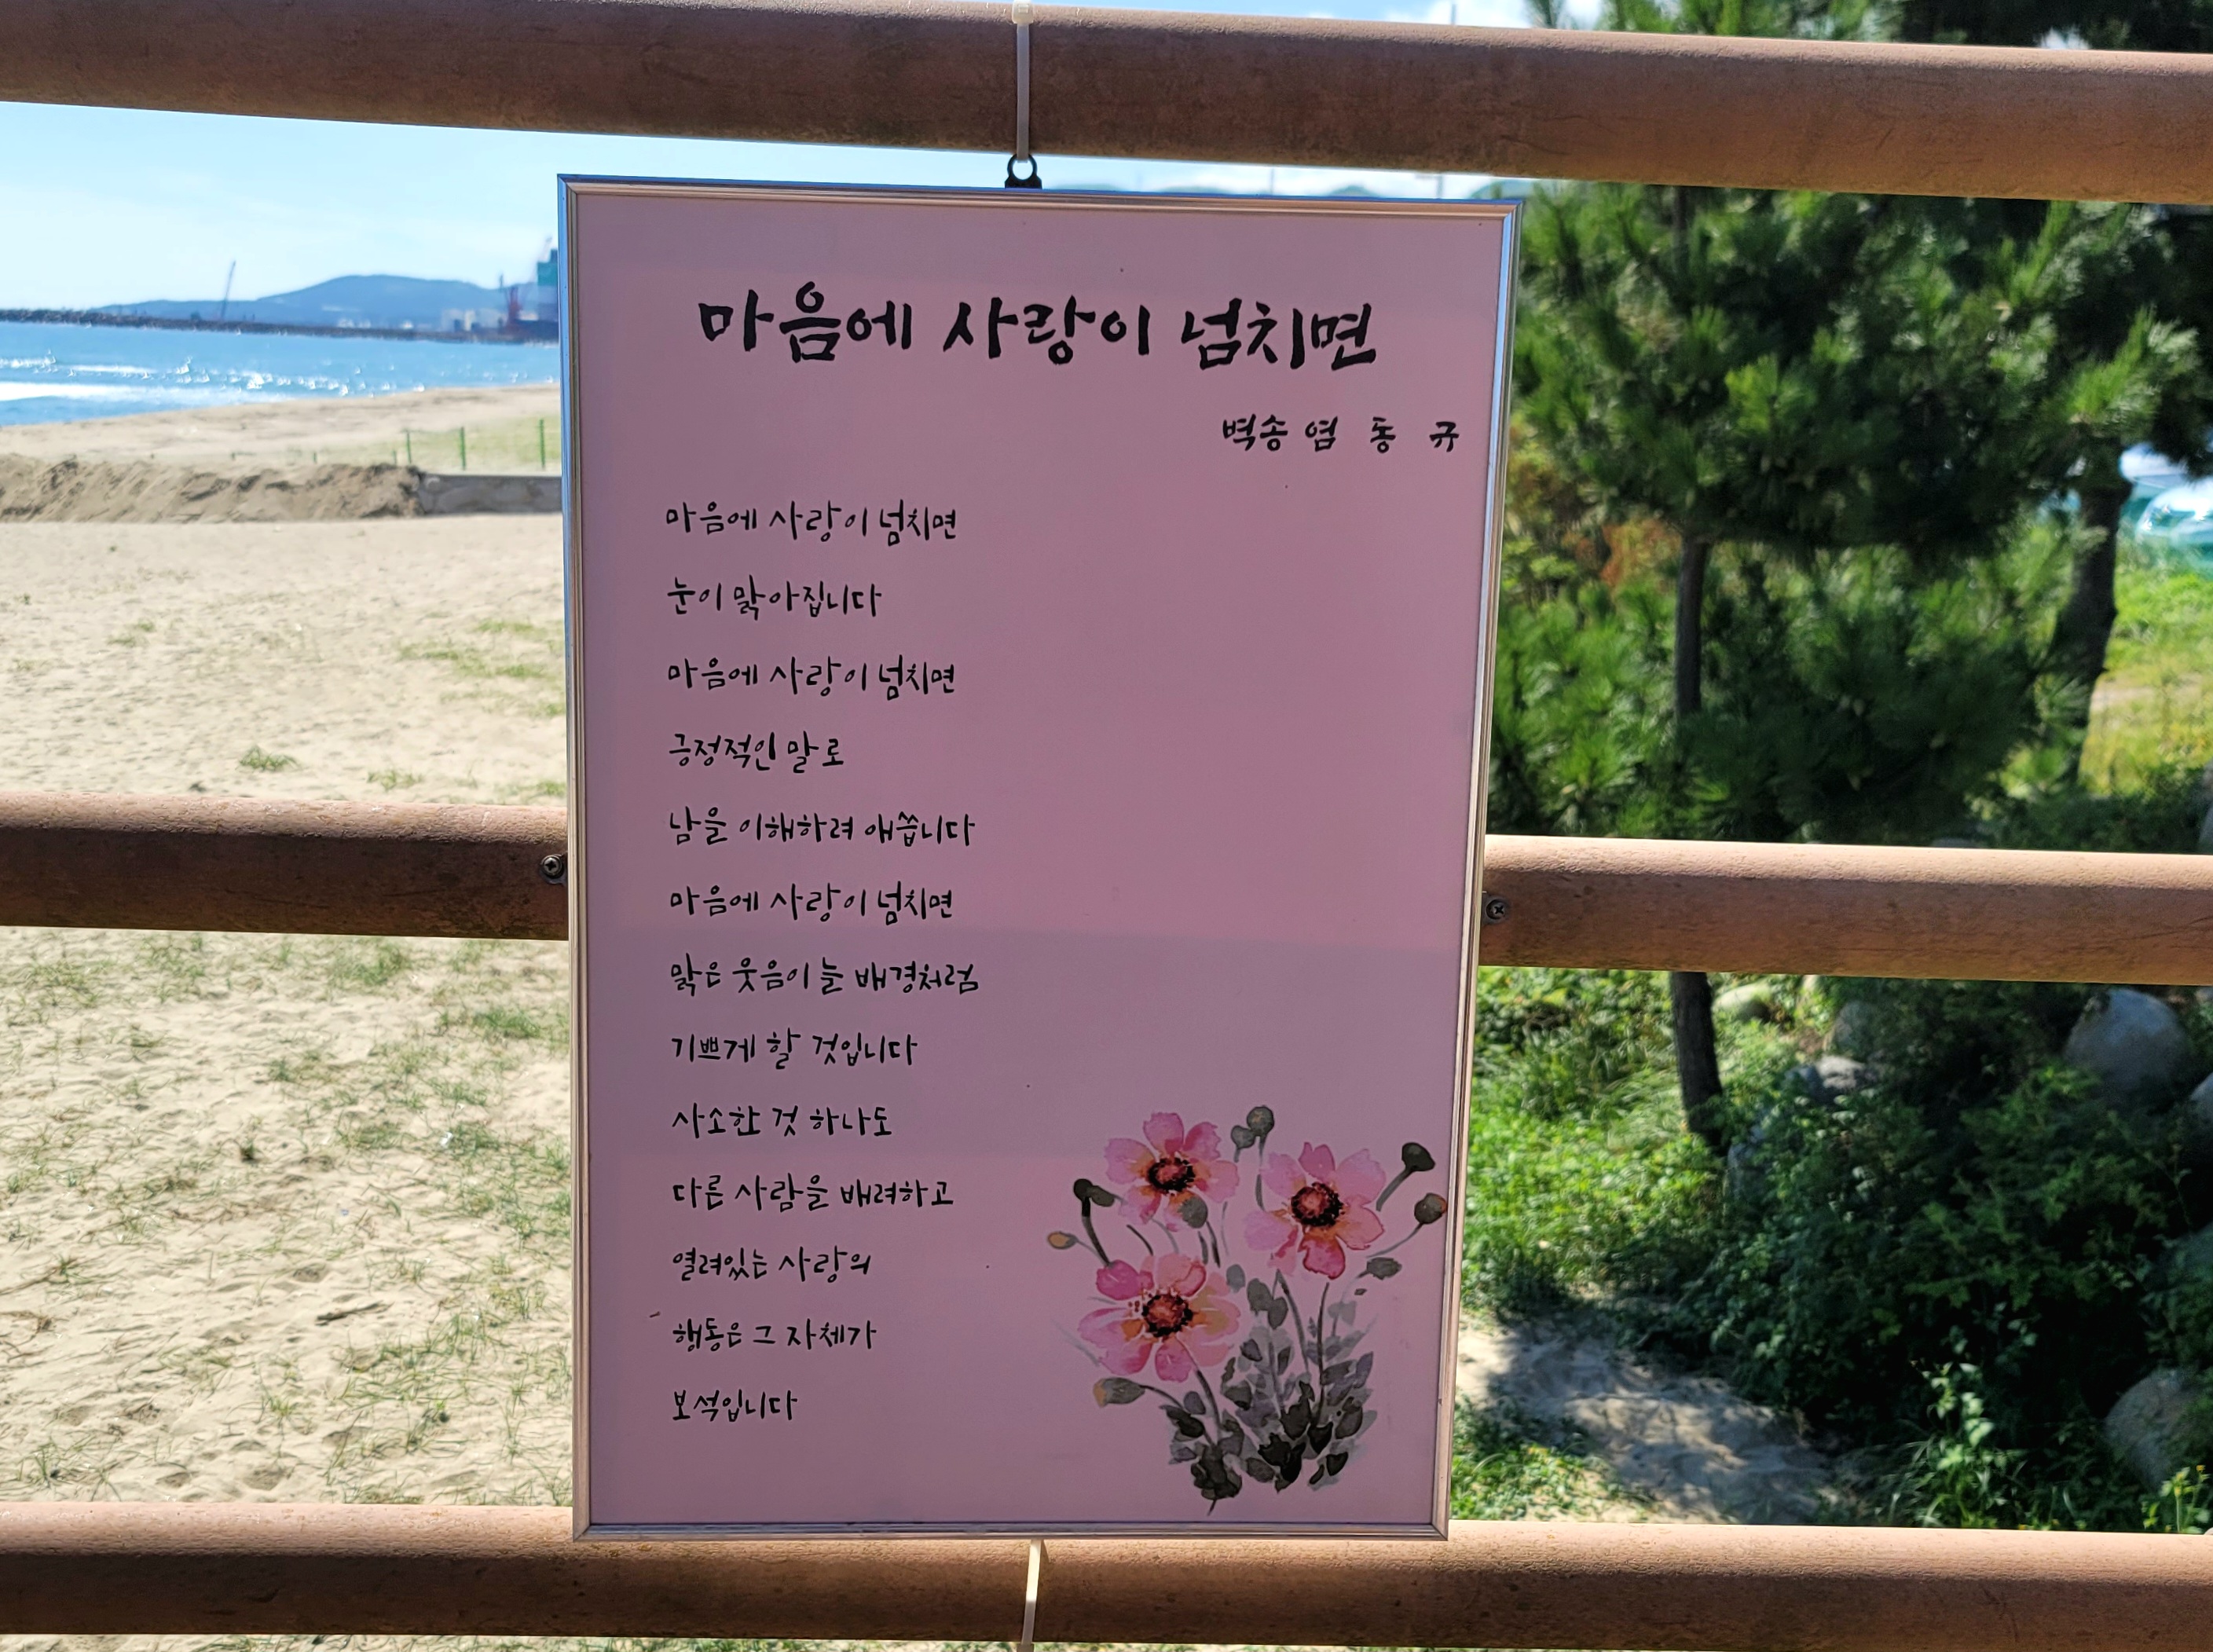 마음에 사랑이 넘치면
벽송 염 동 규
마음에 사랑이 넘치면
눈이 맑아집니다
마음에 사랑이 넘치면
긍정적인 말로
남을 이해하려 애씁니다
마음에 사랑이 넘치면
맑은 웃음이 늘 배경처럼
기쁘게 할 것입니다
사소한 것 하나도
다른 사람을 배려하고
열려있는 사랑의
행동은 그 자체가
보석입니다